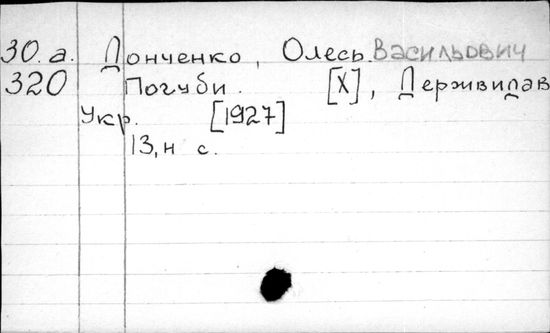 30.а. Донченко, Олесь Васильович
320 Погуби. [Х], Держвидав
Укр. [1927]
13,н с.